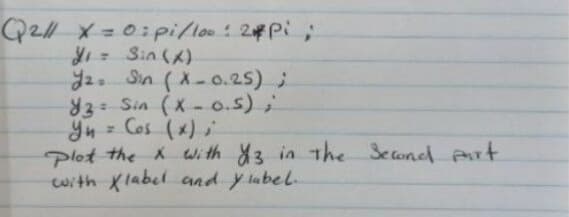 Q2// x = 0:pi/100:2*pi;
y1 = Sin(x)
y2 = Sin (x-0.25);
y3 = Sin (x-0.5);
y4 = Cos (x);
plot the x with y3 in the Second part
with xlabel and ylabel.